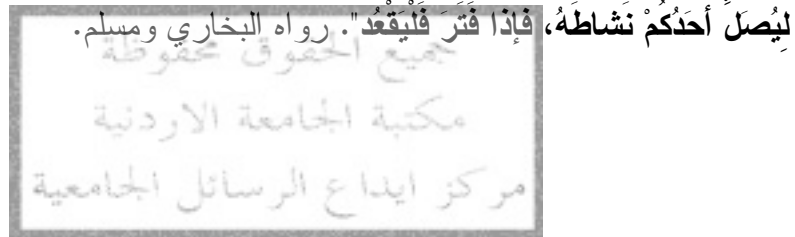 لِيُصَلِّ أحَدُكُمْ نَشاطَهُ، فإذا فَتَرَ فَلْيَقْعُد". رواه البخاري ومسلم.
جميع الحقوق محفوظة
مكتبة الجامعة الاردنية
مركز ايداع الرسائل الجامعية